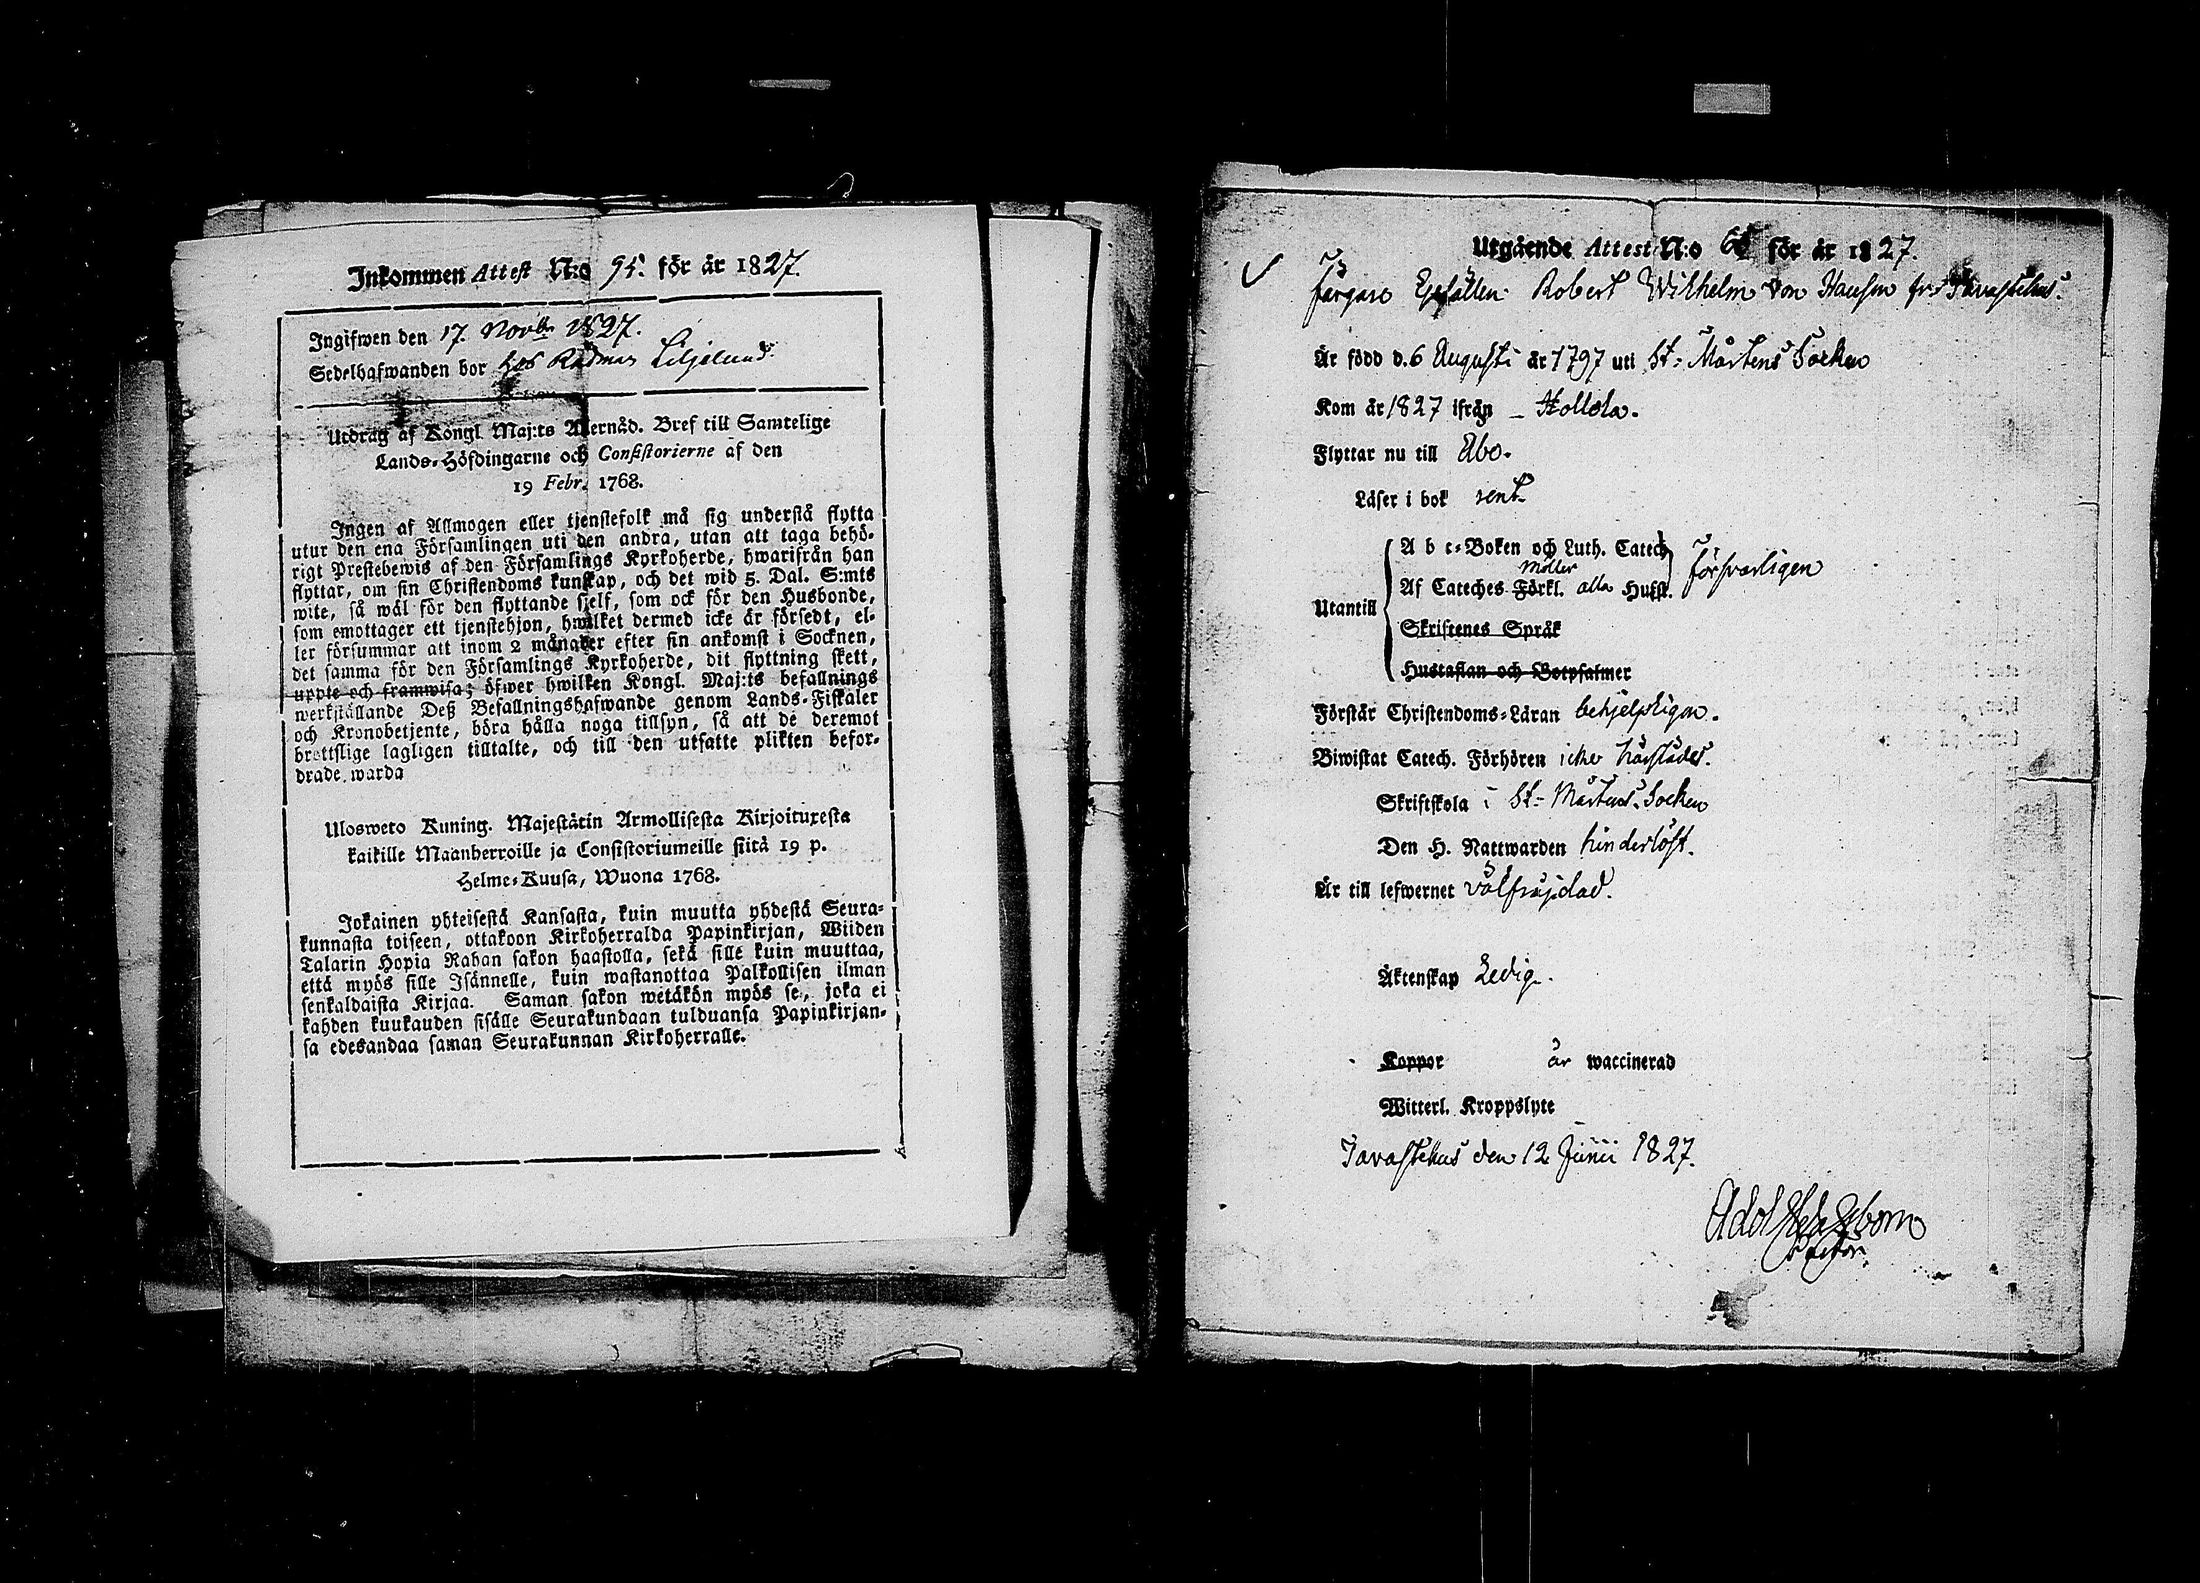 Inkommen Attest N:o 95. för år 1827.
Ingifwen den 17. Novbr 1827.
Sedelhafwanden bor hos Rådman Liljelund.
Utdrag af Kongl Maj:ts Allernåd. Bref till Samtelige
Lands-Höfdingarne och Consistorierne af den
19 Febr. 1768.
Ingen af Allmogen eller tjenstefolk må sig understå flytta
utur den ena Församlingen uti den andra, utan att taga behö-
rigt Prestebewis af den Församlings Kyrkoherde, hwarifrån han
flyttar, om sin Christendoms kunskap, och det wid 5. Dal. S:mts
wite, så wäl för den flyttande sjelf, som ock för den Husbonde,
som emottager ett tjenstehjon, hwilket dermed icke är försedt, el-
ler försummar att inom 2 månader efter sin ankomst i Socknen,
det samma för den Församlings Kyrkoherde, dit flyttning skett,
uppte och framwisa; öfwer hwilken Kongl. Maj:ts befallnings
werkställande Deß Befallningshafwande genom Lands-Fiskaler
och Kronobetjente, böra hålla noga tillsyn, så att de deremot
brottslige lagligen tilltalte, och till den utsatte plikten befor-
drade warda
Ulosweto Kuning. Majestätin Armollisesta Kirjoituxesta
kaikille Maanherroille ja Consistoriumeille siitä 19 p.
Helme-Kuusa, Wuona 1768.
Jokainen yhteisestä Kansasta, kuin muutta yhdestä Seura-
kunnasta toiseen, ottakoon Kirkoherralda Papinkirjan, Wiiden
Talarin Hopia Rahan sakon haastolla, sekä sille kuin muuttaa,
että myös sille Isännelle, kuin wastanottaa Palkollisen ilman
senkaldaista Kirjaa. Saman sakon wetäkön myös se, joka ei
kahden kuukauden sisälle Seurakundaan tulduansa Papinkirjan-
sa edesandaa saman Seurakunnan Kirkoherralle.
Utgående Attest N:o för år 1827.
Färgare Gesällen Robert Wilhelm von Hausen fr. Tavastehus.
Är född d. 6 Augusti år 1797 uti St. Mårtens Socken
Kom år 1827 ifrån Hollola.
Flyttar nu till Åbo.
Läser i bok rent
A b c-Boken och Luth. Catech
Möller försvarligen
Af Cateches Förkl. alla Hufst.
Utantill
Skriftenes Språk
Hustaflan och Botpsalmer
Förstår Christendoms-Läran behjelpligen.
Biwistat Catech. Förhören icke härstädes.
Skriftskola i St. Mårtens Socken
Den H. Nattwarden hinderlöst.
Är till lefwernet välfrejdad.
Äktenskap Ledig.
Koppor är waccinerad
Witterl. Kroppslyte
Tavastehus den 12 Junii 1827.